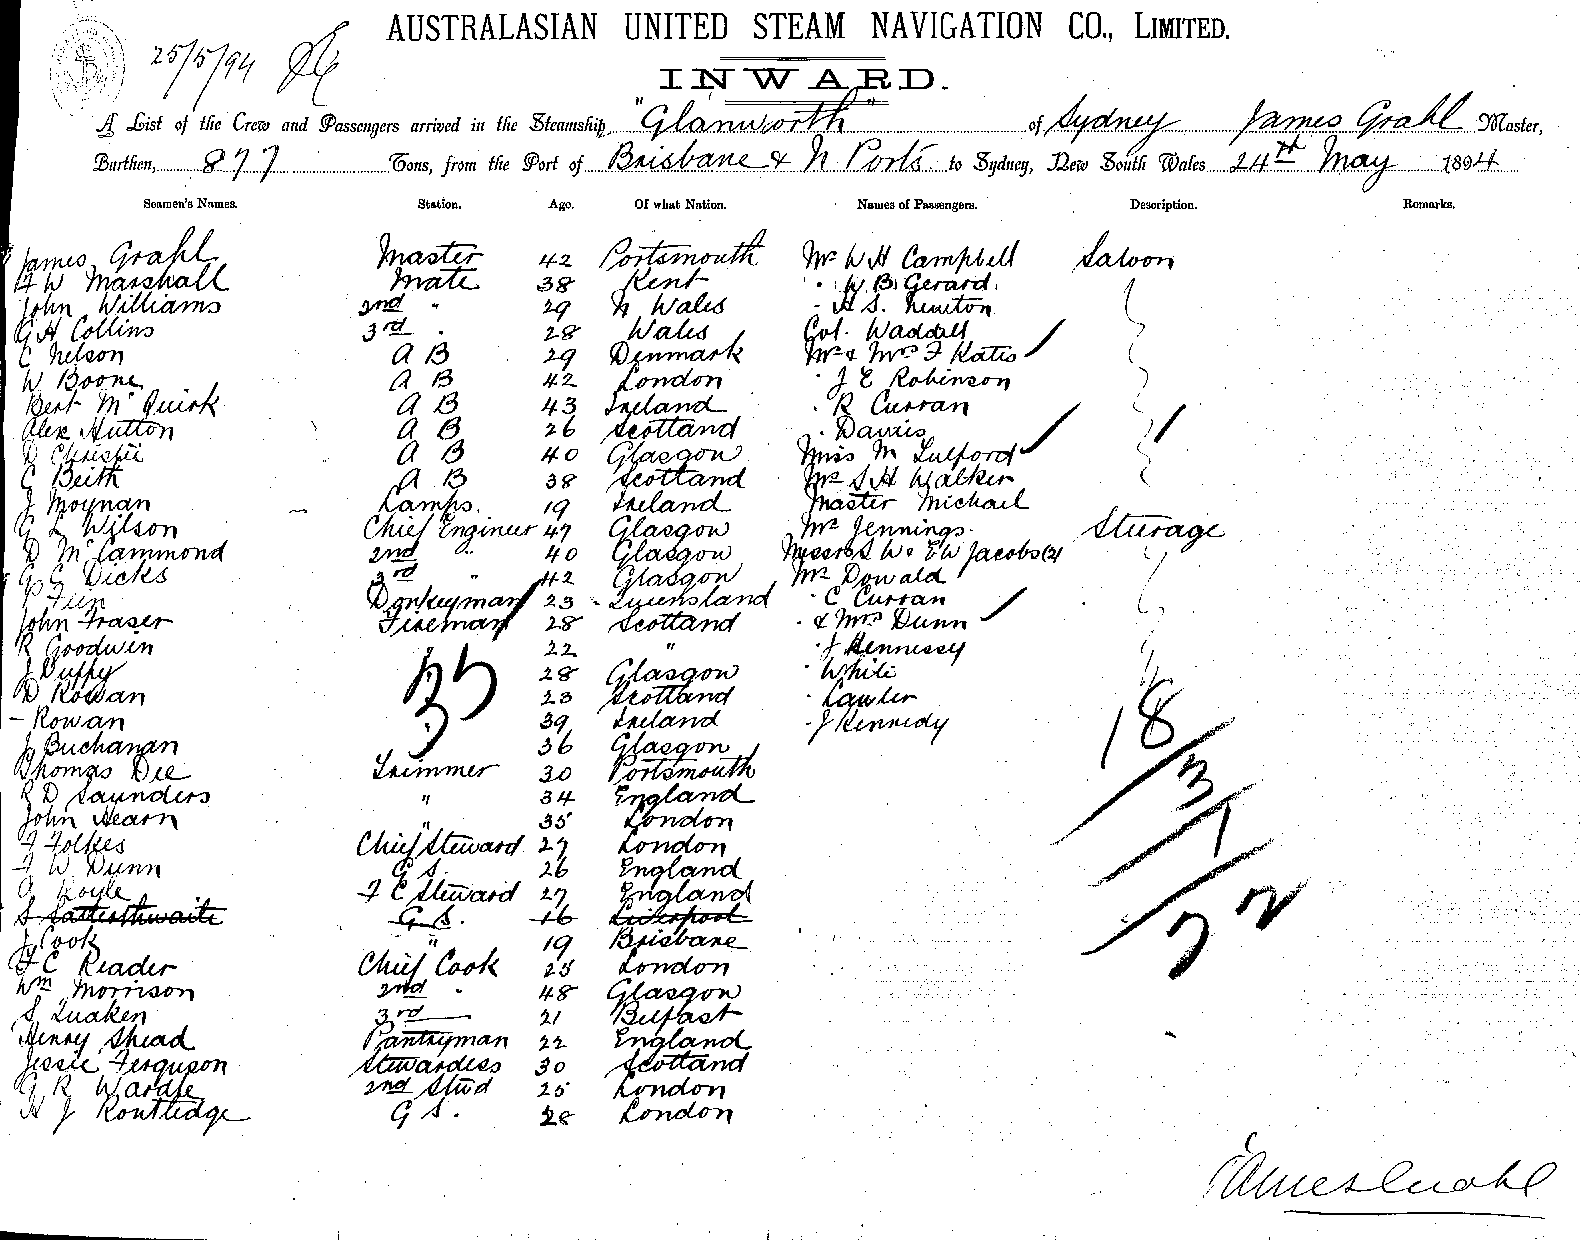 AUSTRALASIAN UNITED STEAM NAVIGATION CO., LIMITED.
25/5/94
INWARD.
A List of the Crew and Passengers arrived in the Steamship "Glanworth" of Sydney James Grahl Master,
Burthen, 877 Tons, from the Port of Brisbane & N Ports to Sydney, New South Wales 24th May 1894
Seamen's Names. Station. Age. Of what Nation. Names of Passengers. Description. Remarks.
James Grahl Master 42 Portsmouth Mr W H Campbell Saloon
A W Marshall Mate 38 Kent " W B Gerard
John Williams 2nd " 29 N Wales " H S. Newton
G H Collins 3rd " 28 Wales Col. Waddell
C Nelson A B 29 Denmark Mr & Mrs F Kates
W Boone A B 42 London " J E Robinson
Bert McQuirk A B 43 Ireland " R Curran
Alex Hutton A B 26 Scotland " Davies
D Christie A B 40 Glasgow Miss M Fulford
C Beith A B 38 Scotland Mr S H Walker
J Moynan Lamps. 19 Ireland Master Michael
G L Wilson Chief Engineer 47 Glasgow Mr Jennings Steerage
D McCammond 2nd " 40 Glasgow Messrs S W & E W Jacobs (2)
G G Dicks 3rd " 42 Glasgow Mr Dowald
Donkeyman 23 Queensland " C Curran
John Fraser Fireman 28 Scotland " & Mrs Dunn
R Goodwin 22 " " J Hennessy
J Duffy 28 Glasgow " White
D Rowan 23 Scotland " Lawler
- Rowan 39 Ireland " J Kennedy
J Buchanan 36 Glasgow
Thomas Dee Trimmer 30 Portsmouth
R D Saunders " 34 England
John Hearn " 35 London
F Folkes Chief Steward 27 London
F W Dunn G S. 26 England
A Hoyle F C Steward 27 England
S Satterthwaite G S. 16 Liverpool
J Cook " 19 Brisbane
F C Reader Chief Cook 25 London
Wm Morrison 2nd " 48 Glasgow
S Quaken 3rd 21 Belfast
Henry Shead Pantryman 22 England
Jessie Ferguson Stewardess 30 Scotland
G R Wardle 2nd Stwd 25 London
H J Routledge G S. 28 London
35
18/3/1/22
James Grahl